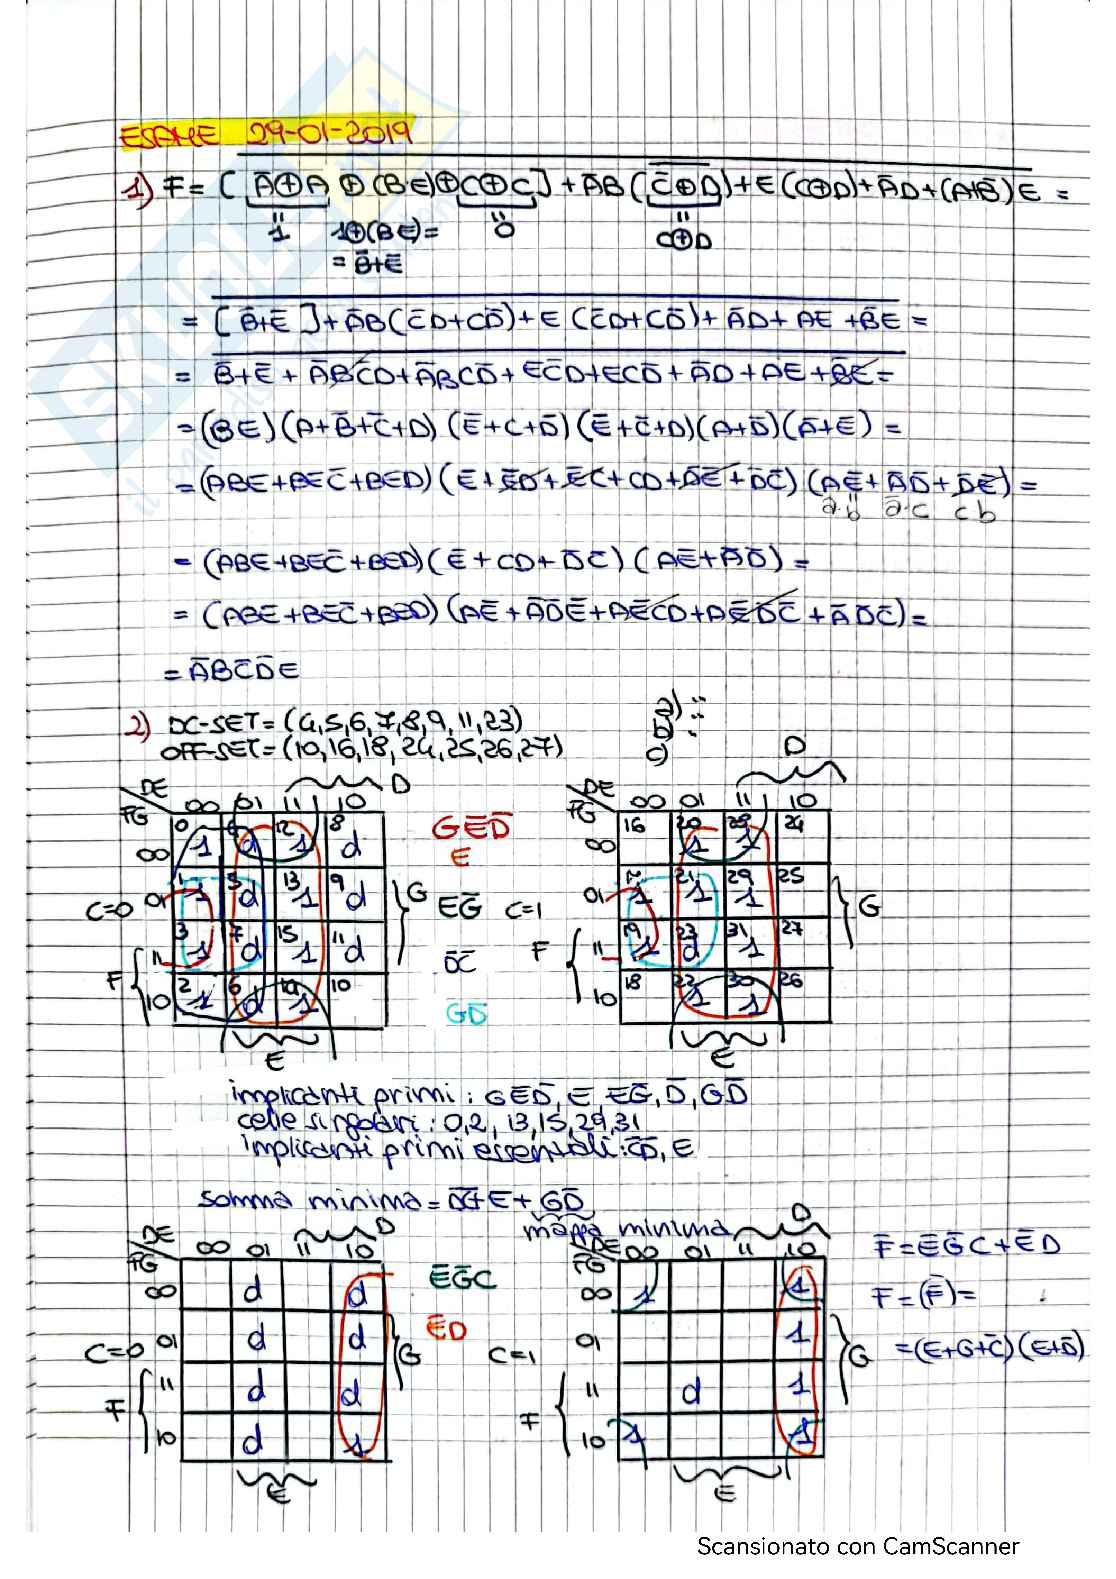 ESAME 29-01-2019
1) F = [ A̅⊕A ⊕ (BE)⊕C⊕C ] + A̅B( C̅⊕D̅ ) + E(C⊕D) + A̅D + (A+B̅)E =
"1 1⊕(BE)= "0 "C⊕D
= B̅+E̅
= [ B̅+E̅ ] + A̅B(C̅D+CD̅) + E(C̅D+CD̅) + A̅D + AE + B̅E =
= B̅+E̅ + A̅BC̅D + A̅BCD̅ + EC̅D + ECD̅ + A̅D + AE + B̅E =
= (BE)(A+B̅+C̅+D)(E̅+C+D̅)(E̅+C̅+D)(A+D̅)(A̅+E̅) =
= (ABE+BEC̅+BED)(E̅+E̅D+E̅C+CD+D̅E̅+D̅C̅)(AE̅+A̅D̅+D̅E̅) =
a·b a̅·c cb
= (ABE+BEC̅+BED)(E̅+CD+D̅C̅)(AE̅+A̅D̅) =
= (ABE+BEC̅+BED)(AE̅+A̅D̅E̅+AE̅CD+AE̅D̅C̅+A̅D̅C̅) =
= A̅BC̅D̅E
2) DC-SET = (4,5,6,7,8,9,11,23)
OFF-SET = (10,16,18,24,25,26,27)
a)
b)
c)
DE 00 01 11 10 D
FG
00 0 1 4 d 12 1 8 d
C=0 01 1 1 5 d 13 1 9 d G
F 11 3 1 7 d 15 1 11 d
10 2 1 6 d 14 1 10
E
GE̅D̅
E
EG̅
D̅C̅
GD̅
DE 00 01 11 10 D
FG
00 16 20 1 28 1 24
C=1 01 17 1 21 1 29 1 25 G
F 11 19 1 23 d 31 1 27
10 18 22 1 30 1 26
E
implicanti primi: GE̅D̅, E, EG̅, D̅, GD̅
celle singolari: 0,2, 13,15,29,31
implicanti primi essenziali: C̅D̅, E
somma minima = D̅C̅+E+GD̅
mappa minima
DE 00 01 11 10 D
FG
00 d d
C=0 01 d d G
F 11 d d
10 d 1
E
E̅G̅C
E̅D
DE 00 01 11 10 D
FG
00 1 1
C=1 01 1 G
F 11 d 1
10 1 1
E
F̅ = E̅G̅C + E̅D
F = (F̅) =
= (E+G+C̅)(E+D̅)
Scansionato con CamScanner